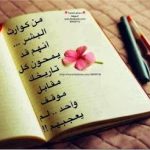 من كوارث
البشر ...
انهم قد
يمحون كل
تاريخك
مقابل
موقف
واحد .. لم
يعجبهم !!